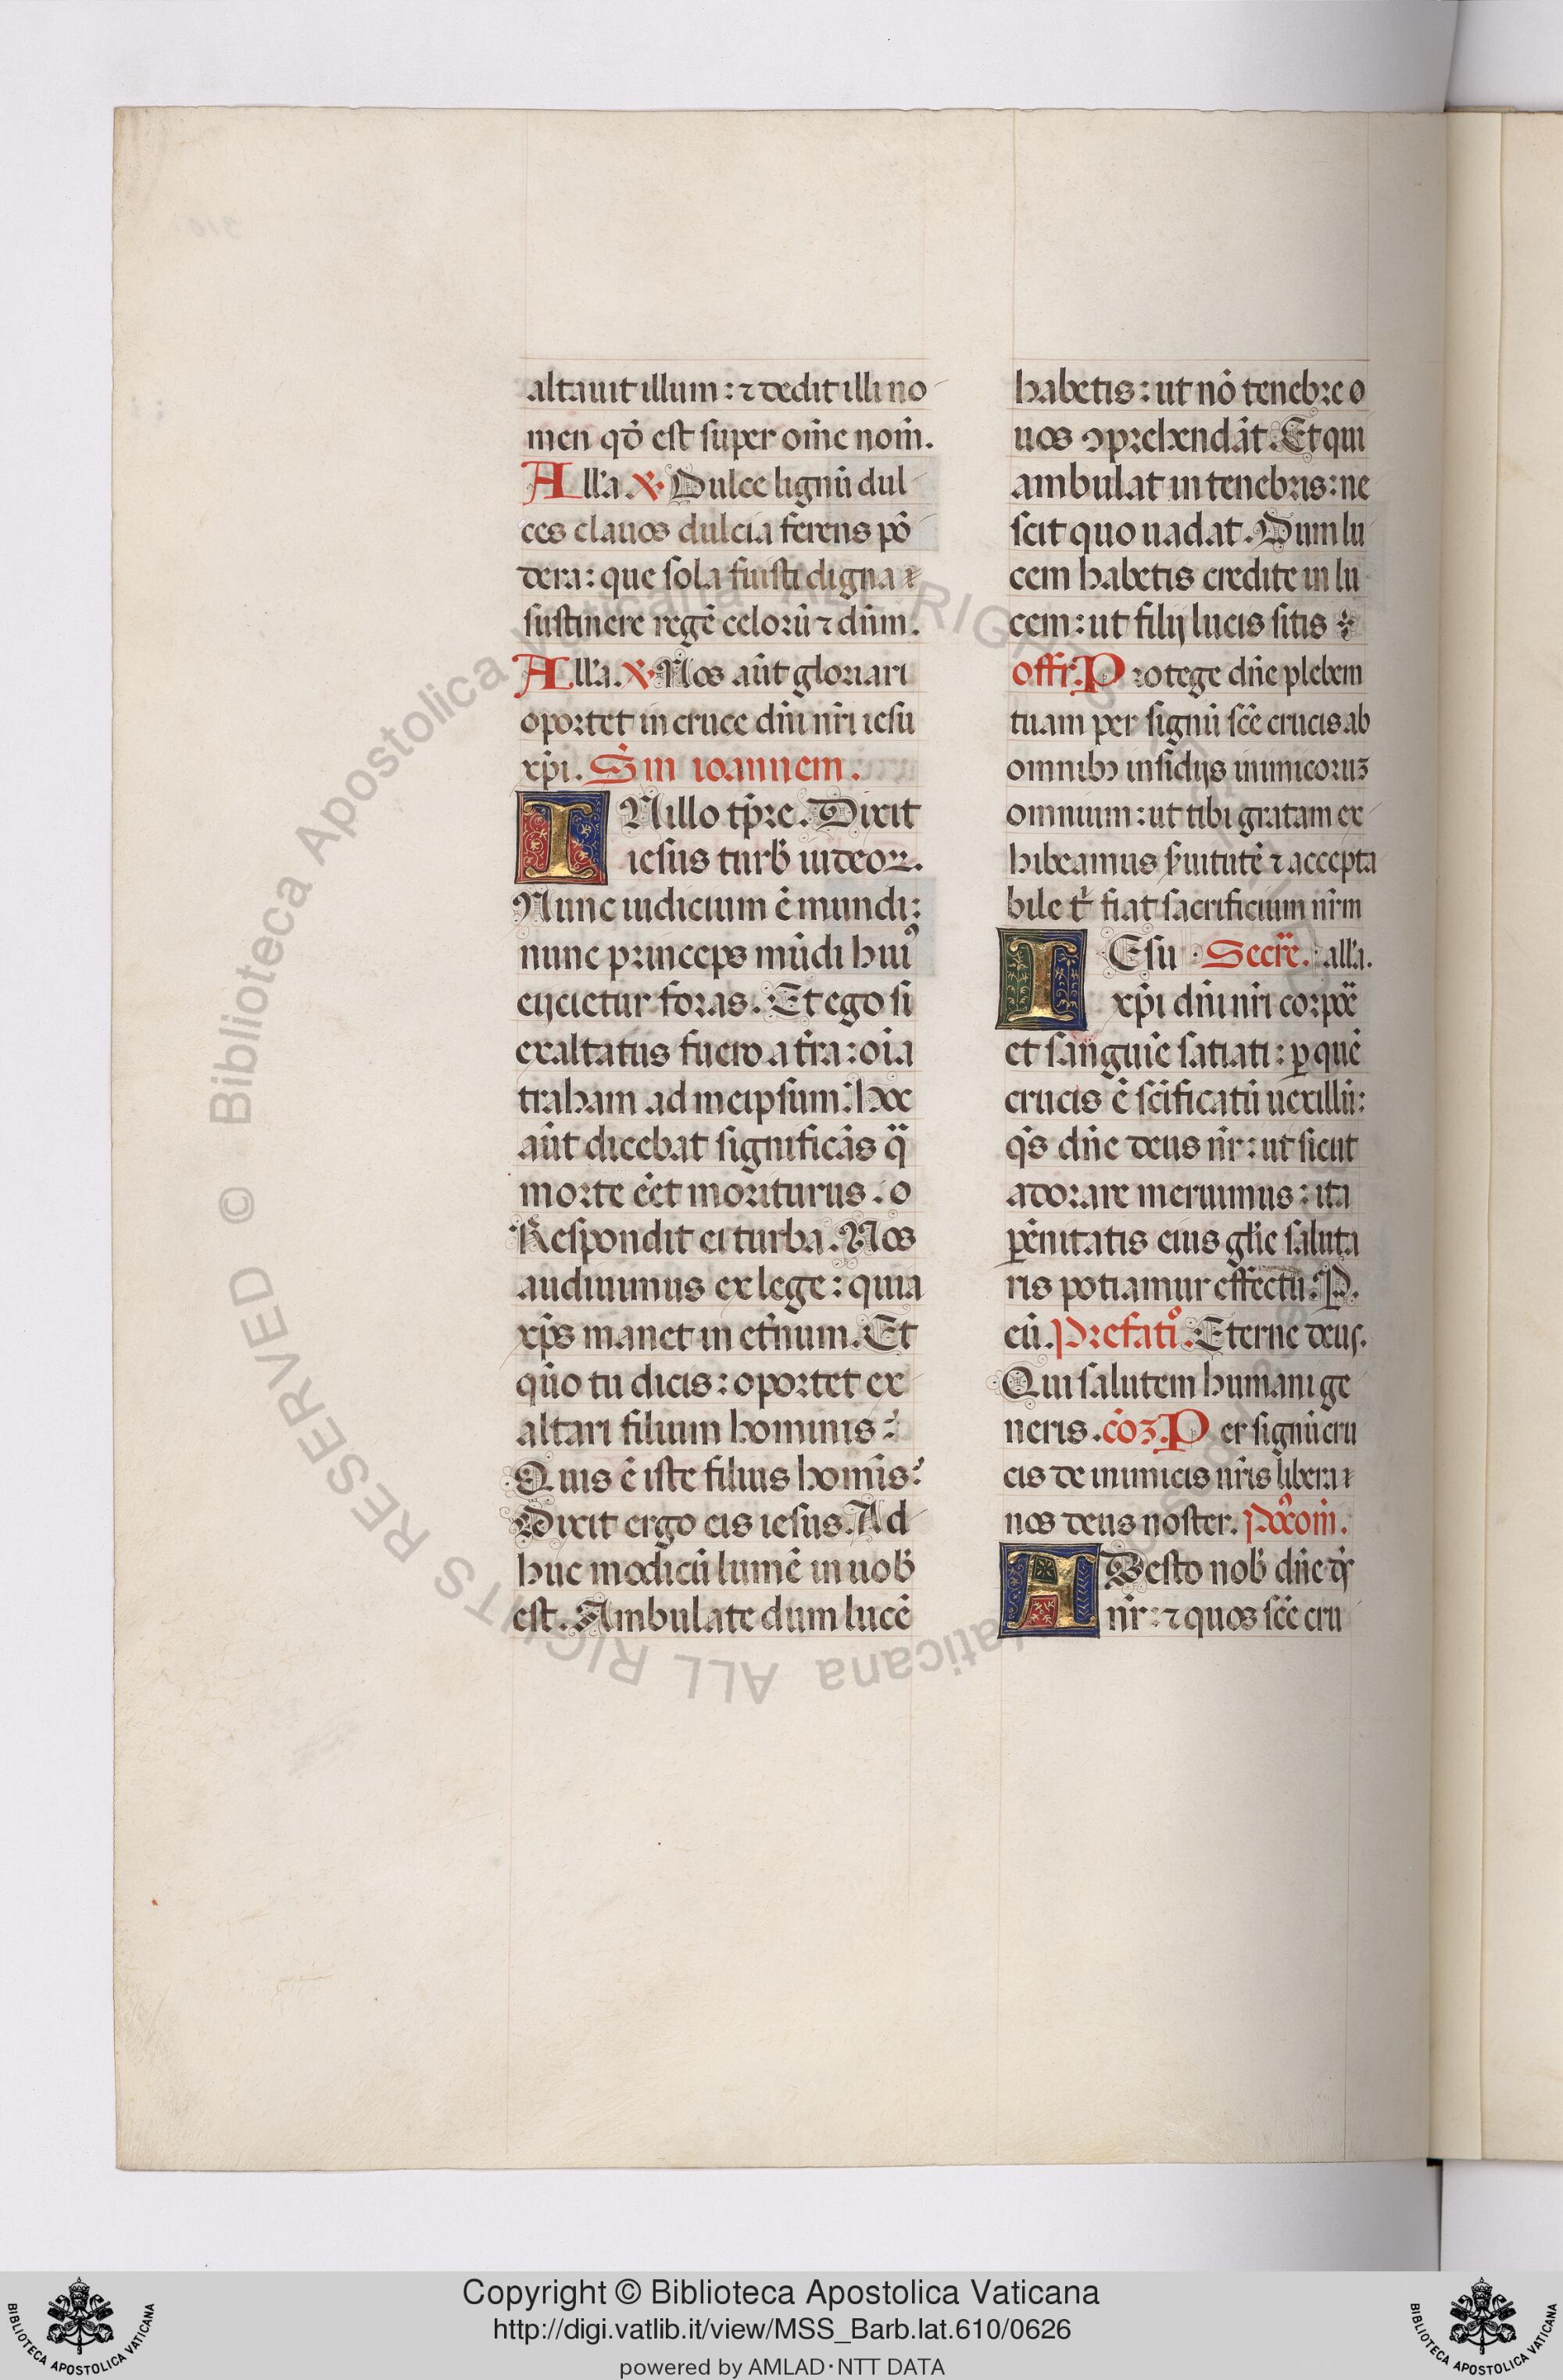 altauit illum: ⁊ dedit illi no
men qđ est super om̄e nom̄.
All'a. ℣. Dulce lignū dul
ces clauos dulcia ferens pō
dera: que sola fuisti digna
sustinere regē celorū ⁊ dn̄m.
All'a. ℣. Nos aūt gloriari
oportet in cruce dn̄i nr̄i iesu
xp̄i. Sm̄ ioannem.
IN illo tp̄re. Dixit
iesus turb̄ iudeoꝝ.
Nunc iudicium ē mundi:
nunc princeps mūdi huiꝰ
eijcietur foras. Et ego si
exaltatus fuero a tr̄a: oīa
traham ad meipsum: hoc
aūt dicebat significās q̄
morte eēt moriturus. o
Respondit ei turba. Nos
audiuimus ex lege: quia
xp̄s manet in etr̄num. Et
quō tu dicis: oportet ex
altari filium hominis:
Quis ē iste filius hom̄is?
Dixit ergo eis iesus. Ad
huc modicū lumē in uob̄
est. Ambulate dum lucē
habetis: ut nō tenebre o
uos ꝯprehendāt. Et qui
ambulat in tenebris: ne
scit quo uadat. Dum lu
cem habetis credite in lu
cem: ut filij lucis sitis
offr̄. Protege dn̄e plebem
tuam per signū scē crucis ab
omnibꝰ insidijs inimicoruꝫ
omnium: ut tibi gratam ex
hibeamus s̄uitutē ⁊ accepta
bile t' fiat sacrificium nr̄m
IEsu Secre͞. all'a.
xp̄i dn̄i nr̄i corpoē
et sanguīe satiati: ꝑ quē
crucis ē scīficatū uexillū:
q̄s dn̄e deus nr̄: ut sicut
adorare meruimus: ita
ꝑēnitatis eius glīe saluta
ris potiamur effectu. P.
eū. Prefatiº. Eterne deus.
Qui salutem humani ge
neris. cōꝫ. Per signū cru
cis de inimicis nr̄is libera
nos deus noster. Pꝰcom̄.
ADesto nob̄ dn̄e q̄s
nr̄: ⁊ quos scē cru
© Biblioteca Apostolica Vaticana ALL RIGHTS RESERVED
Copyright © Biblioteca Apostolica Vaticana
http://digi.vatlib.it/view/MSS_Barb.lat.610/0626
powered by AMLAD・NTT DATA
BIBLIOTECA APOSTOLICA VATICANA
BIBLIOTECA APOSTOLICA VATICANA